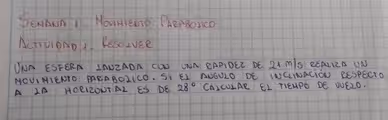 SEMANA 1. MOVIMIENTO PARABOLICO
ACTIVIDAD 1. RESOLVER
UNA ESFERA LANZADA CON UNA RAPIDEZ DE 21 m/s REALIZA UN
MOVIMIENTO PARABOLICO. SI EL ANGULO DE INCLINACIÓN RESPECTO
A LA HORIZONTAL ES DE 28° CALCULAR EL TIEMPO DE VUELO.